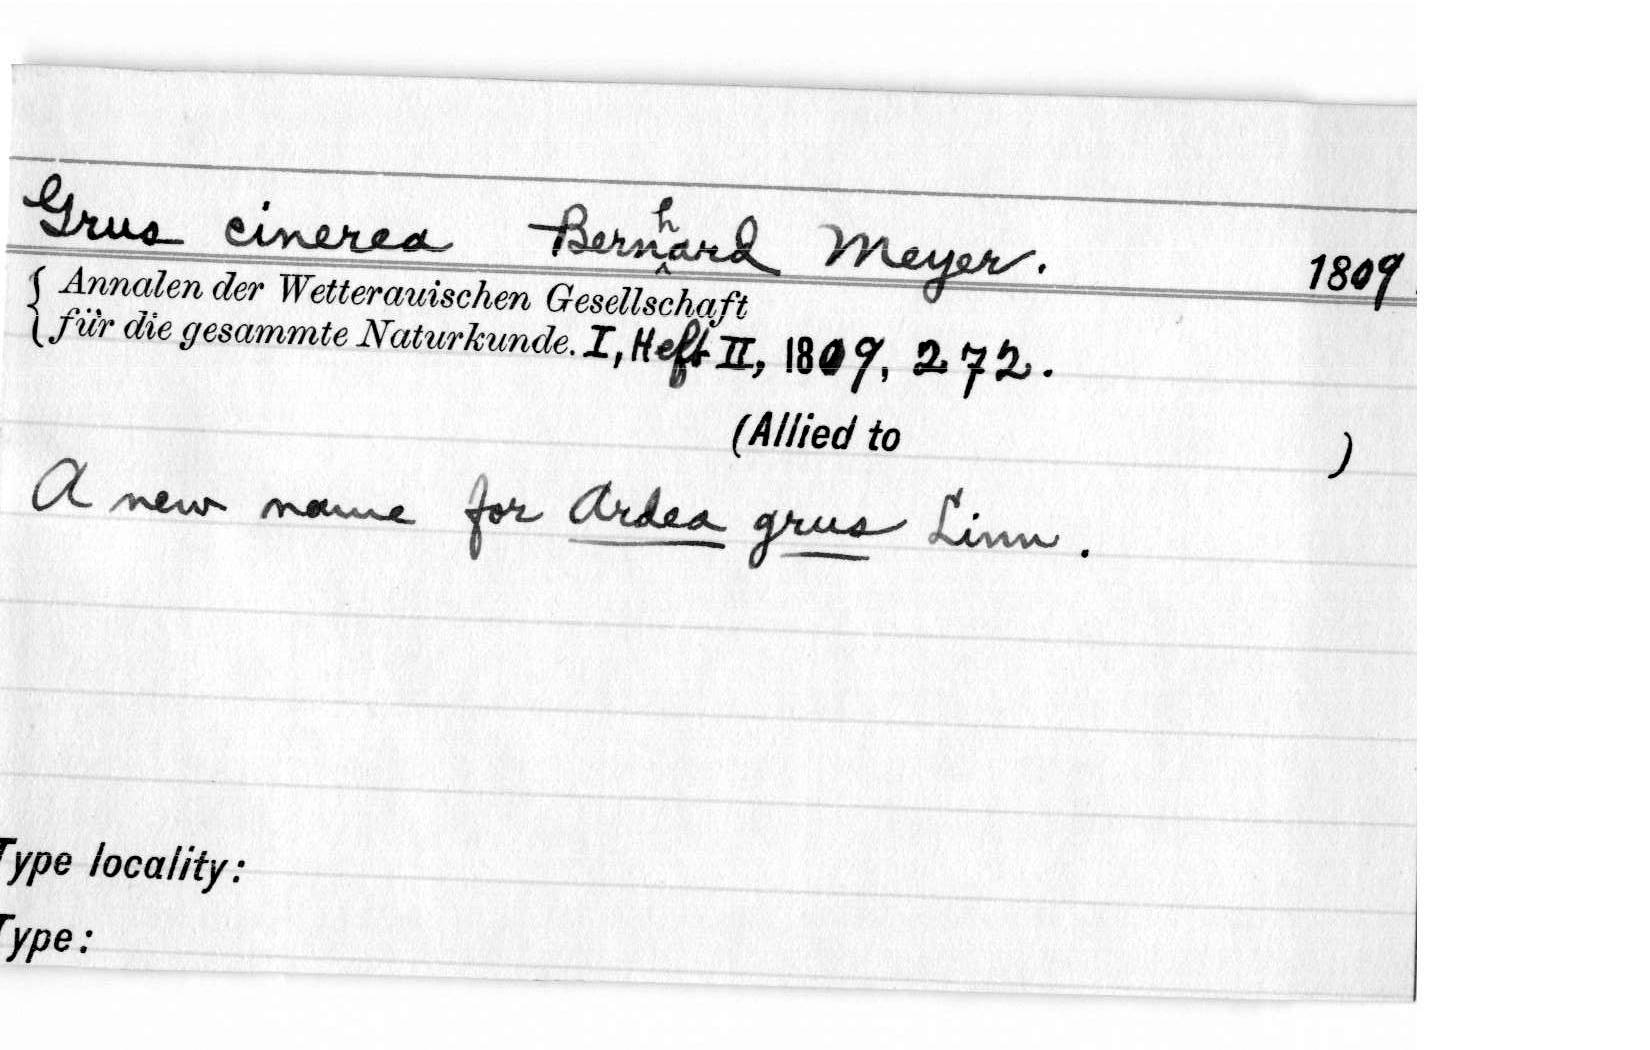 Grus cinerea Bernhard Meyer. 1809.
{ Annalen der Wetterauischen Gesellschaft
für die gesammte Naturkunde. I, Heft II, 1809, 272.
(Allied to )
A new name for Ardea grus Linn.
Type locality:
Type: